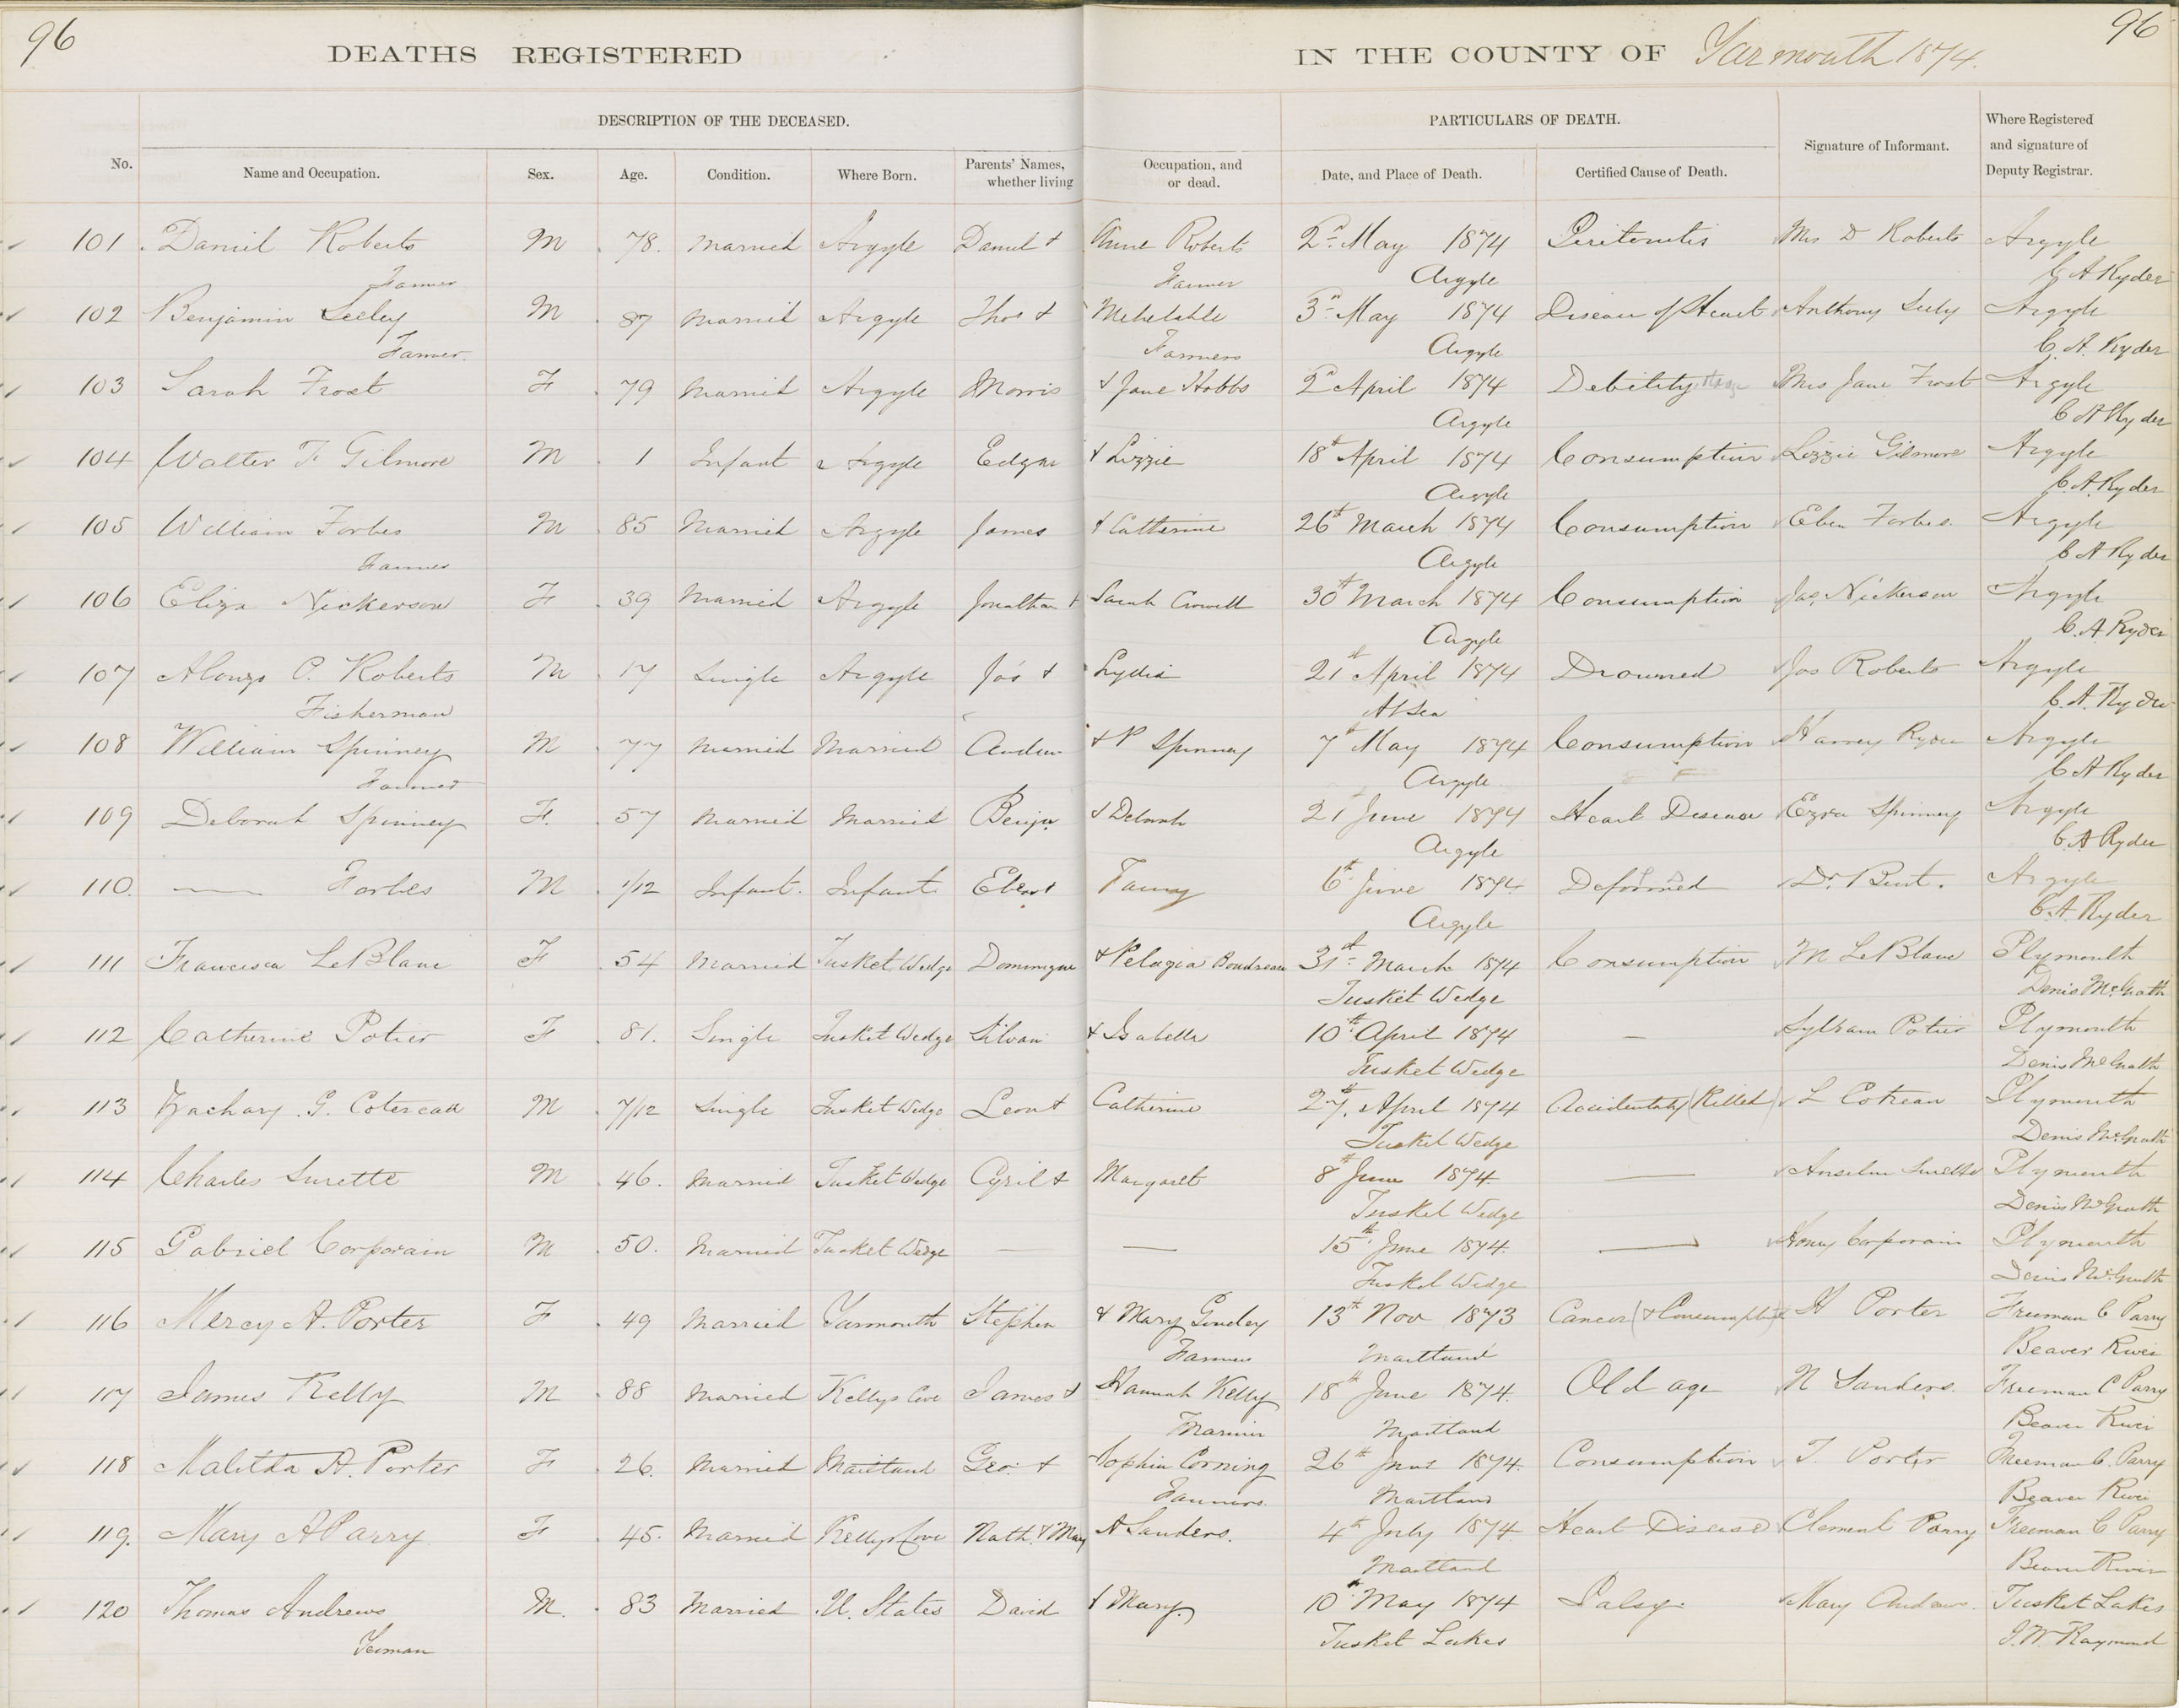 96 96
DEATHS REGISTERED IN THE COUNTY OF Yarmouth 1874.
DESCRIPTION OF THE DECEASED. PARTICULARS OF DEATH. Signature of Informant. Where Registered and signature of Deputy Registrar.
No. Name and Occupation. Sex. Age. Condition. Where Born. Parents' Names, whether living Occupation, and or dead. Date, and Place of Death. Certified Cause of Death.
101 Daniel Roberts M 78. Married Argyle Daniel & Anne Roberts 2nd May 1874 Peritonitis Mrs D Roberts Argyle
Farmer Farmer Argyle C A Ryder
102 Benjamin Seeley M 87 Married Argyle Thos & Mehetable 3rd May 1874 Disease of Heart Anthony Seely Argyle
Farmer. Farmers Argyle C. A. Ryder
103 Sarah Frost F 79 Married Argyle Morris & Jane Hobbs 2nd April 1874 Debility Mrs Jane Frost Argyle
Argyle C A Ryder
104 Walter F Gilmore M 1 Infant Argyle Edgar & Lizzie 18th April 1874 Consumption Lizzie Gilmore Argyle
Argyle C. A. Ryder
105 William Forbes M 85 Married Argyle James & Catherine 26th March 1874 Consumption Eben Forbes. Argyle
Farmer Argyle C A Ryder
106 Eliza Nickerson F 39 Married Argyle Jonathan & Sarah Crowell 30th March 1874 Consumption Jas. Nickerson Argyle
Argyle C. A. Ryder
107 Alonzo C. Roberts M 17 Single Argyle Jos & Lydia 21st April 1874 Drowned Jos Roberts Argyle
Fisherman At Sea C. A. Ryder
108 William Spinney M 77 Married Married Andrew & P Spinney 7th May 1874 Consumption Harvey Ryder Argyle
Farmer Argyle C A Ryder
109 Deborah Spinney F. 57 Married Married Benja & Deborah 21 June 1874 Heart Disease Ezra Spinney Argyle
Argyle C. A Ryder
110. — Forbes M 1/12 Infant. Infant Eben & Fanny 6th June 1874 Deformed Dr. Bent. Argyle
Argyle C. A. Ryder
111 Francisca LeBlanc F 54 Married Tusket Wedge Dominique & Pelagia Boudreau 31st March 1874 Consumption M LeBlanc Plymouth
Tusket Wedge Denis McGrath
112 Catherine Potier F 81. Single Tusket Wedge Silvan & Isabella 10th April 1874 — Sylvain Potier Plymouth
Tusket Wedge Denis McGrath
113 Zachary. G. Cotereau M 7/12 Single Tusket Wedge Leon & Catherine 27th April 1874 Accidentaly (Killed) L Cotreau Plymouth
Tusket Wedge Denis McGrath
114 Charles Surette M 46. Married Tusket Wedge Cyril & Margaret 8th June 1874. — Anselm Surette Plymouth
Tusket Wedge Denis McGrath
115 Gabriel Corporain M 50. Married Tusket Wedge — — 15th June 1874. — Corporain Plymouth
Tusket Wedge Denis McGrath
116 Mercy A. Porter F 49 Married Yarmouth Stephen & Mary Goudey 13th Nov 1873 Cancer (& Consumption H Porter Freeman C Parry
Farmer Maitland Beaver River
117 James Kelly M 88 Married Kellys Cove James & Hannah Kelly 18th June 1874. Old age N Sanders. Freeman C Parry
Mariner Maitland Beaver River
118 Malitda A. Porter F 26. Married Maitland Geo. & Sophia Corning 26th June 1874. Consumption T. Porter Freeman C. Parry
Farmers. Maitland Beaver River
119. Mary A Parry F 45. Married Kellys Cove Nath. & Mary A Sanders. 4th July 1874. Heart Disease Clement Parry Freeman C Parry
Maitland Beaver River
120 Thomas Andrews M. 83 Married U. States David & Mary. 10th May 1874 Palsy. Mary Andrews. Tusket Lakes
Yeoman Tusket Lakes J. W. Raymond